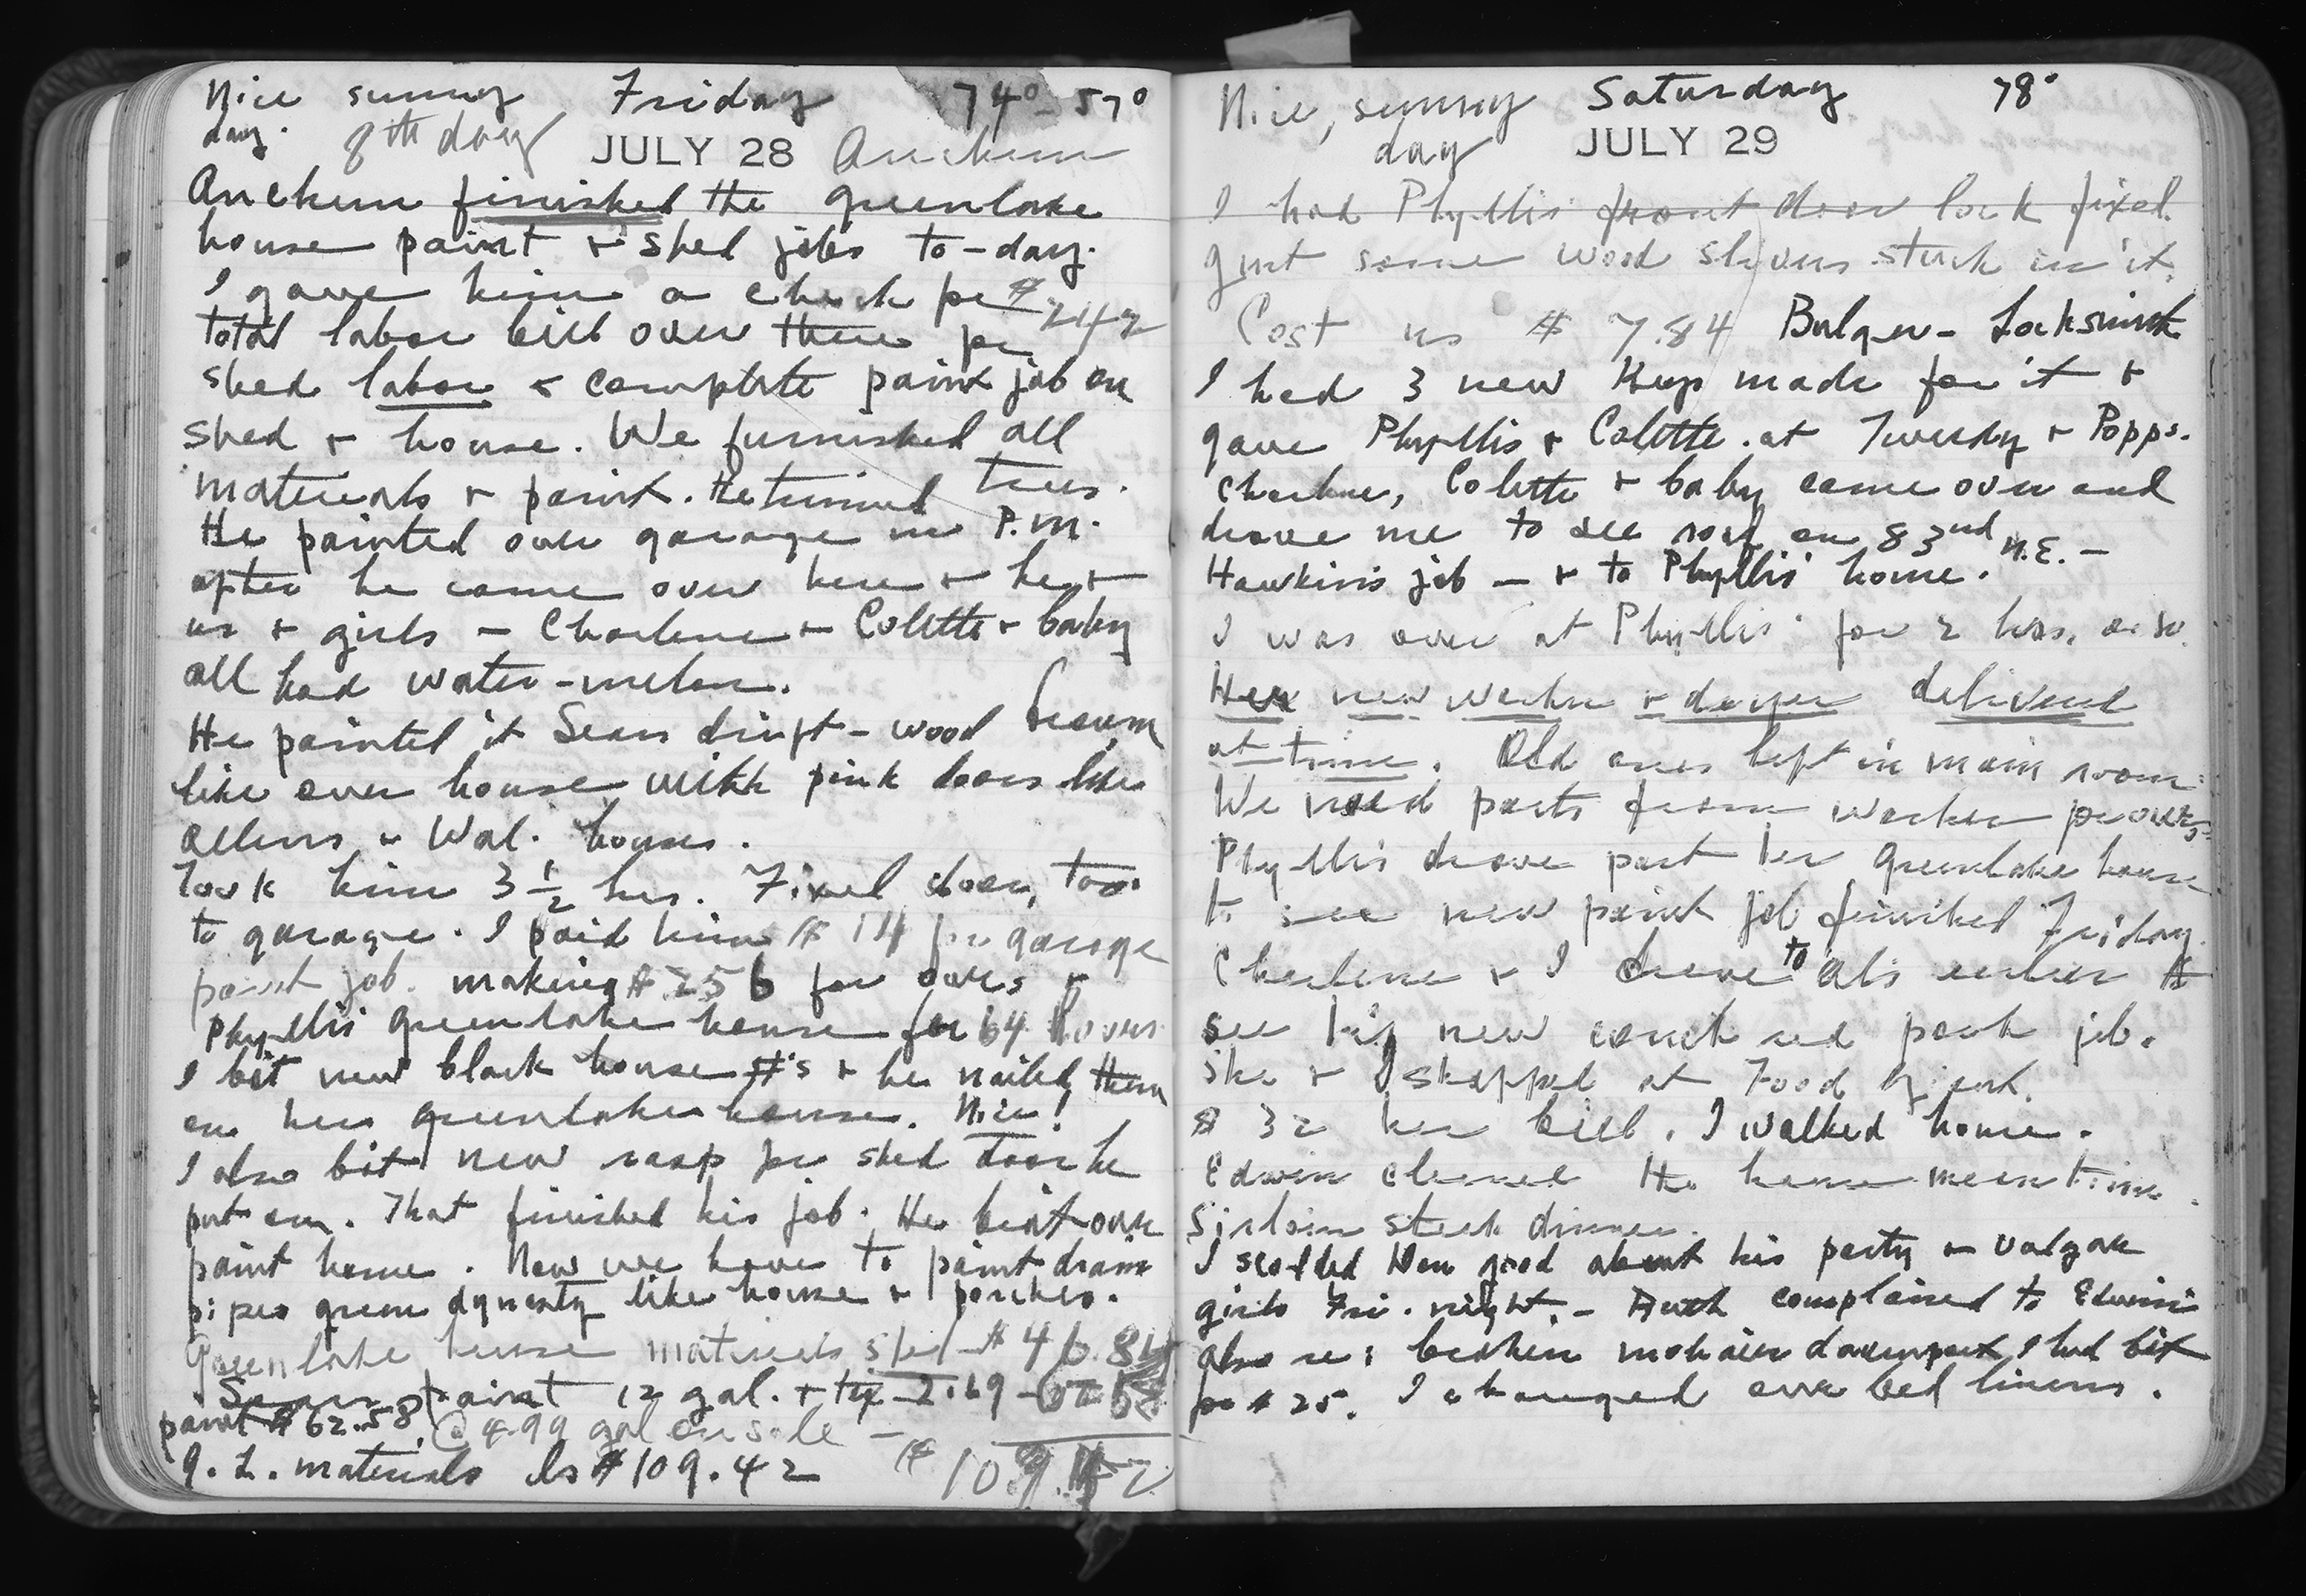 Nice sunny Friday 74° - 57°
day. 8th day JULY 28 Anchum
Anchum finished the Greenlake
house paint + shed jobs to-day.
I gave him a check for $242
total labor bill over there for
shed labor + complete paint job on
shed + house. We furnished all
materials + paint. He trimmed trees.
He painted over garage in P.M.
after he came over here + he +
us + girls - Charlene + Colette + baby
all had water-melon.
He painted it Sears drift-wood brown
like our house with pink doors like
Allens + Wal. houses.
Took him 3 1/2 hrs. Fixed door, too
to garage. I paid him $14 for garage
paint job. making $256 for ours +
Phyllis Greenlake house for 64 hours
I bot new black house #'s + he nailed them
on her Greenlake house. Nice!
I also bot new hasp for shed door he
put on. That finished his job. He brot our
paint home. Now we have to paint drain
pipes green dynasty like house + porches.
Greenlake house materials shed - $46.84
Sears paint 12 gal. + tax 2.69 - 62.58
paint $62.58 @ 4.99 gal on sale -
G.L. materials is $109.42 $109.42
Nice, sunny Saturday 78°
day JULY 29
I had Phyllis front door lock fixed.
Just some wood slivers stuck in it.
Cost us $7.84 Bulger - Locksmith
I had 3 new keys made for it +
gave Phyllis + Colette. at Tweedy + Popps.
Charlene, Colette + baby came over and
drove me to see roof on 83nd N.E. -
Hawkins job - + to Phyllis' home.
I was over at Phyllis' for 2 hrs. or so.
Her new washer + dryer delivered
at time. Old ones left in main room.
We need parts from washer for ours.
Phyllis drove past her Greenlake house
to see new paint job finished Friday.
Charlene + I drove to Als earlier to
see his new couch and porch job.
She + I shopped at Food Giant.
$32 her bill. I walked home.
Edwin cleaned the house meantime.
Sirloin steak dinner.
I scolded good about his party + vulgar
girls Fri. night. - Ruth complained to Edwin
also re: broken mohair davenport I had bot
for $25. I changed our bed linens.